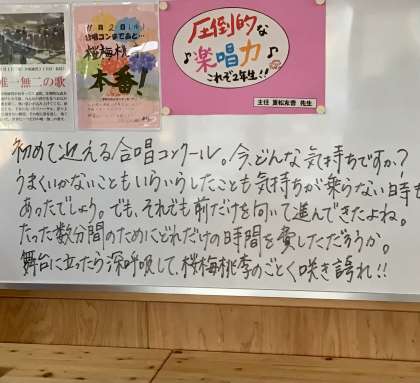 唯一無二の歌
合唱コンまであと…
桜梅桃李
本番!
圧倒的な
♪楽唱力♪
これぞ2年生!!
主任 重松友香 先生
初めて迎える合唱コンクール。今、どんな気持ちですか?
うまくいかないこともいらいらしたことも気持ちが乗らない時も
あったでしょう。でも、それでも前だけを向いて進んできたよね。
たった数分間のためにどれだけの時間を費しただろうか。
舞台に立ったら深呼吸して、桜梅桃李のごとく咲き誇れ!!